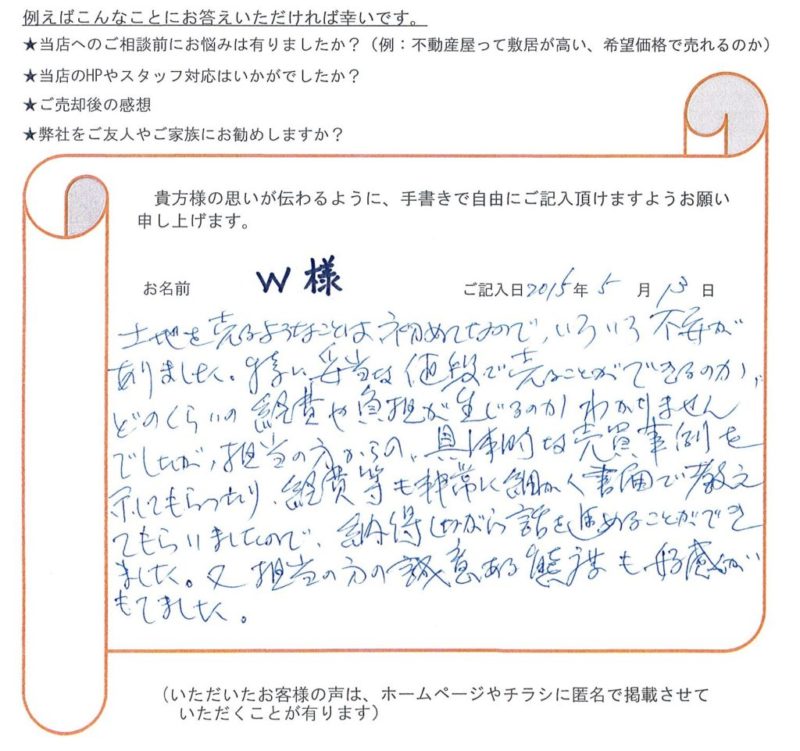 例えばこんなことにお答えいただければ幸いです。
★当店へのご相談前にお悩みは有りましたか？（例：不動産屋って敷居が高い、希望価格で売れるのか）
★当店のHPやスタッフ対応はいかがでしたか？
★ご売却後の感想
★弊社をご友人やご家族にお勧めしますか？
貴方様の思いが伝わるように、手書きで自由にご記入頂けますようお願い
申し上げます。
お名前 W様 ご記入日2015年5月13日
土地を売るようなことは初めてなので、いろいろ不安が
ありました。特に、妥当な値段で売ることができるのか、
どのくらいの経費や負担が生じるのかわかりません
でしたが、担当の方からの、具体的な売買事例を
示してもらったり、経費等も非常に細かく書面で教え
てもらいましたので、納得しながら話を進めることができ
ました。又担当の方の誠意ある態度も好感が
もてました。
（いただいたお客様の声は、ホームページやチラシに匿名で掲載させて
いただくことが有ります）